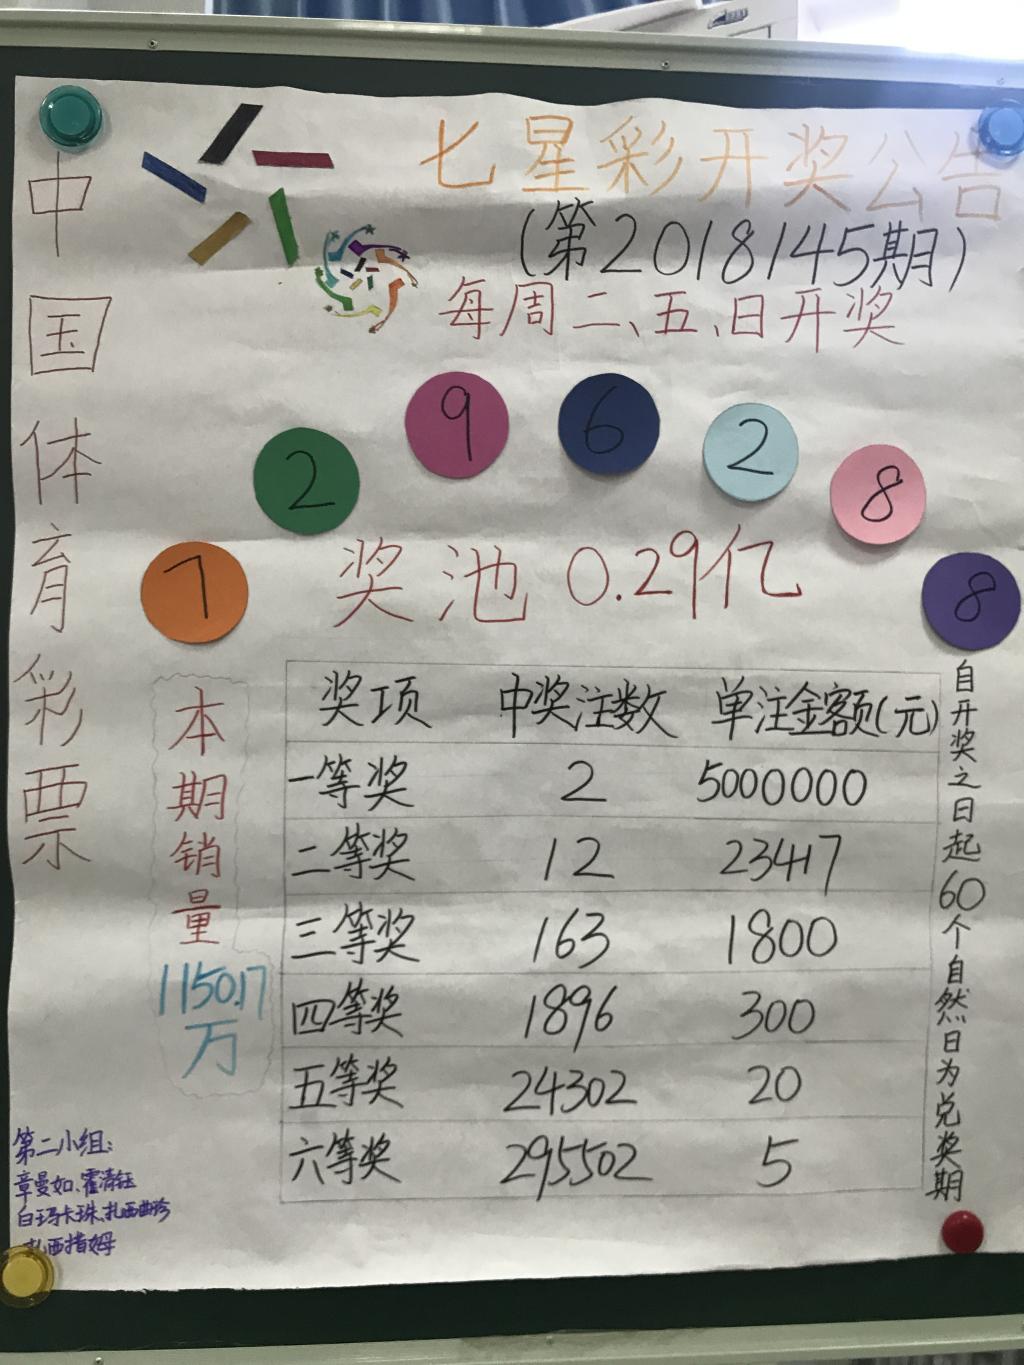 中国体育彩票
七星彩开奖公告
(第2018145期)
每周二、五、日开奖
7 2 9 6 2 8 8
奖池 0.29亿
本期销量
1150.17
万
奖项 中奖注数 单注金额(元)
一等奖 2 5000000
二等奖 12 23417
三等奖 163 1800
四等奖 1896 300
五等奖 24302 20
六等奖 295502 5
自开奖之日起60个自然日为兑奖期
第二小组:
章曼如、霍清钰
白玛卡珠、扎西曲珍
扎西措姆